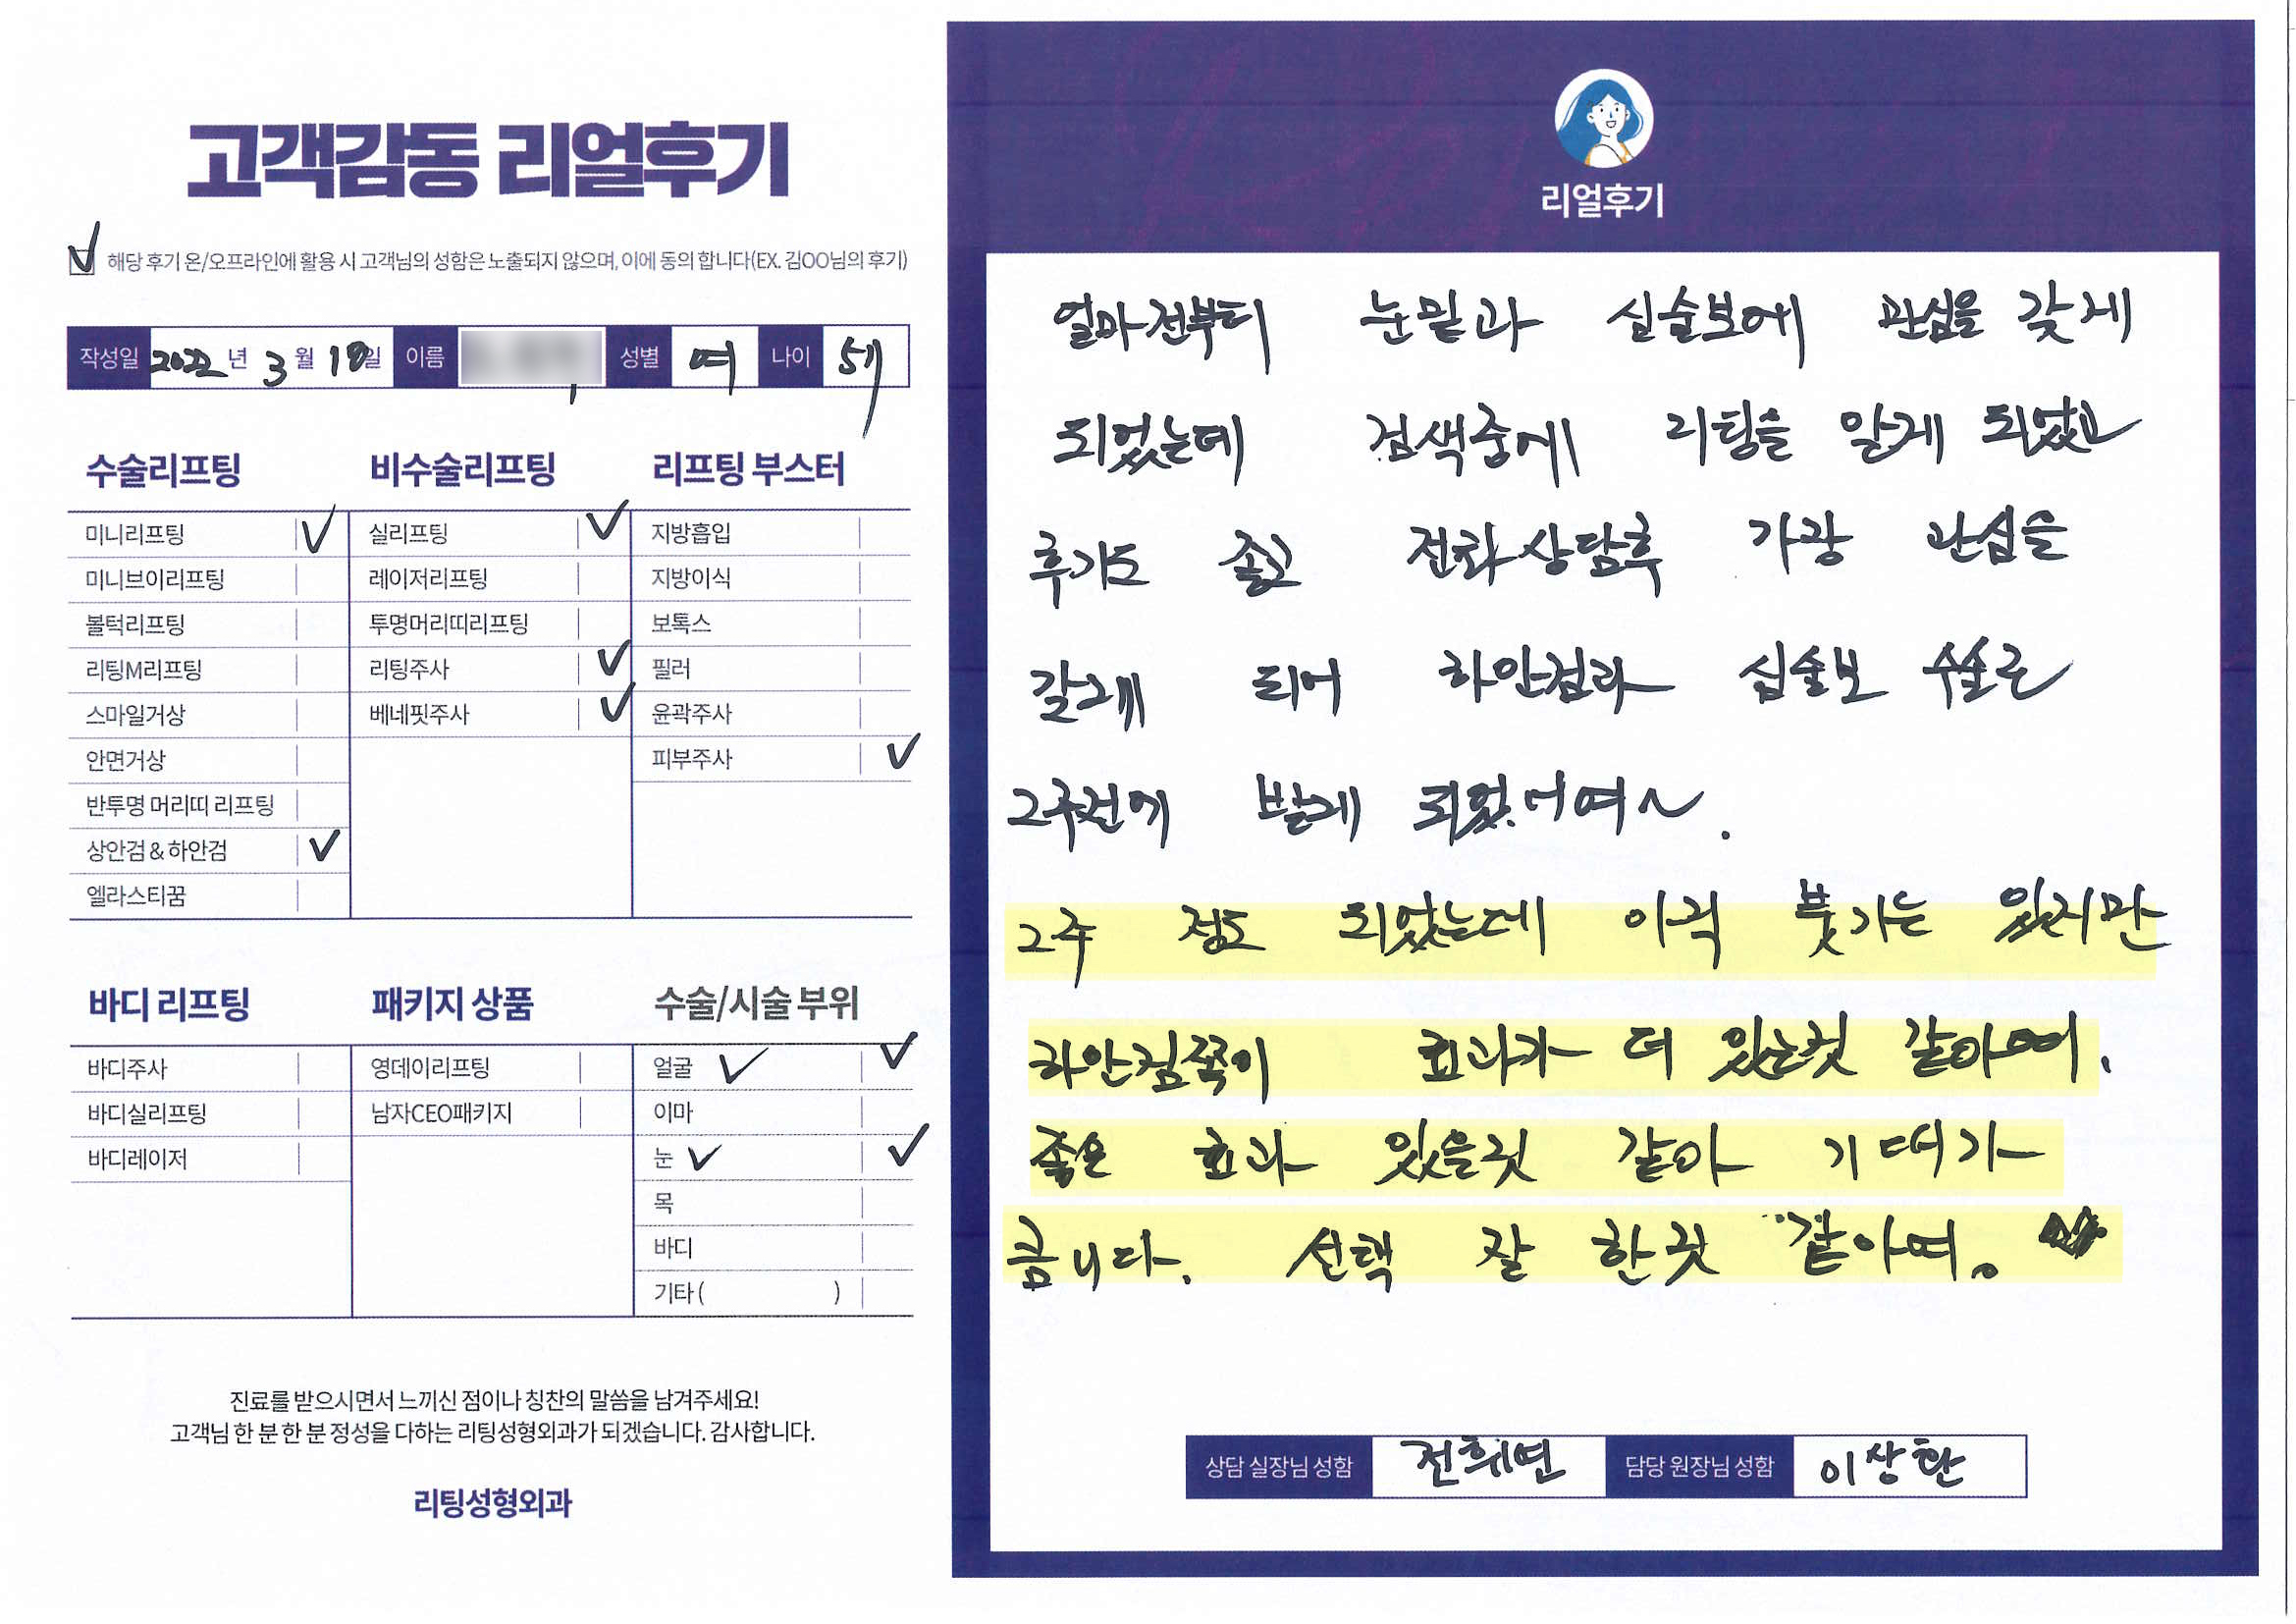 고객감동 리얼후기
해당 후기 온/오프라인에 활용 시 고객님의 성함은 노출되지 않으며, 이에 동의 합니다(EX. 김OO님의 후기)
작성일 2022 년 3 월 18일 이름 성별 여 나이
수술리프팅
미니리프팅
미니브이리프팅
볼턱리프팅
리팅M리프팅
스마일거상
안면거상
반투명 머리띠 리프팅
상안검 & 하안검
엘라스티꿈
비수술리프팅
실리프팅
레이저리프팅
투명머리띠리프팅
리팅주사
베네핏주사
리프팅 부스터
지방흡입
지방이식
보톡스
필러
윤곽주사
피부주사
바디 리프팅
바디주사
바디실리프팅
바디레이저
패키지 상품
영데이리프팅
남자CEO패키지
수술/시술 부위
얼굴
이마
눈
목
바디
기타 ( )
진료를 받으시면서 느끼신 점이나 칭찬의 말씀을 남겨주세요!
고객님 한 분 한 분 정성을 다하는 리팅성형외과가 되겠습니다. 감사합니다.
리팅성형외과
리얼후기
얼마전부터 눈밑과 심술보에 관심을 갖게
되었는데 검색중에 리팅을 알게 되었고
후기도 좋고 전화상담후 가장 관심을
갖게 되어 하안검과 심술보 수술을
2주전에 받게 되었어여~.
2주 정도 되었는데 아직 붓기는 있지만
하안검쪽이 효과가 더 있는것 같아여.
좋은 효과 있을것 같아 기대가
큽니다. 선택 잘 한것 같아여.
상담 실장님 성함 전휘연 담당 원장님 성함 이상환